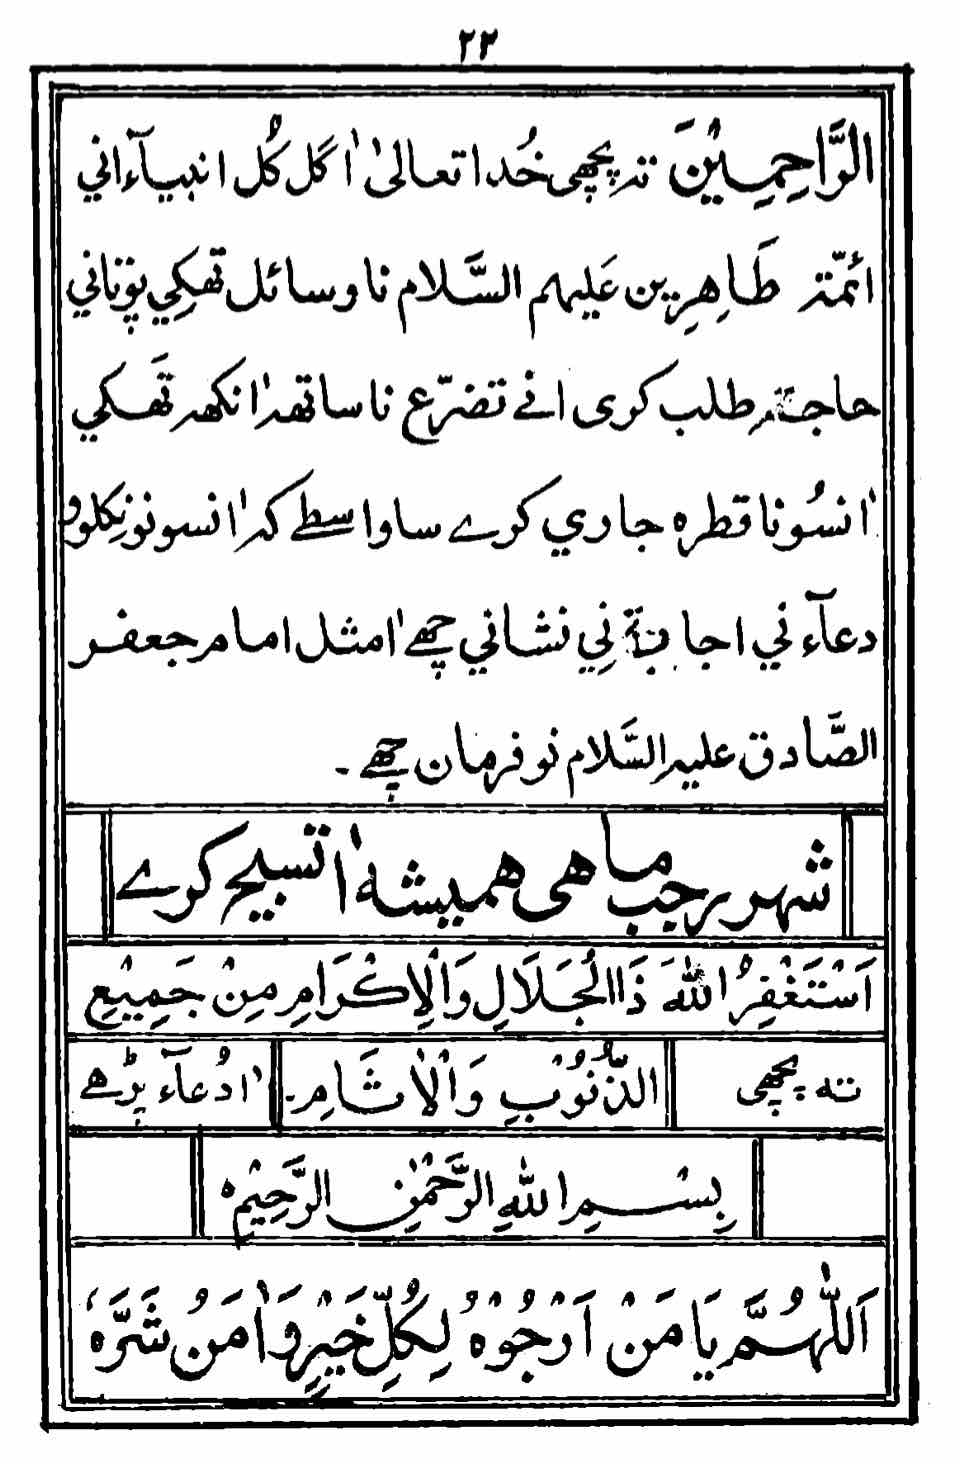 ٢٣
الرَّاحِمِيْنَ تہ پچھي خُدا تعالىٰ اٰ گل كُل انبيآء اني
ائمّتہ طَاهِرِين عَليهم السَّلام نا وسائل تھكي پوتاني
حاجتہ طلب كرى انے تضرّع نا ساتھ اٰنكھ تھكي
اٰنسُو نا قطره جاري كرے سا واسطے كہ اٰنسو نو نكلوو
دعآء ني اجابة ني نشاني چھے اٰمثل امام جعفر
الصَّادق عليہ السَّلام نو فرمان چھے ۔
شهر رجب ما هى هميشه اٰ تسبيح كرے
اَسْتَغْفِرُ اللهَ ذَا الْجَلَالِ وَالْاِكْرَامِ مِنْ جَمِيْعِ
الذُّنُوْبِ وَالْاٰثَامِ ۔ تہ پچھي اٰ دُعآء پڑھے
بِسْمِ اللهِ الرَّحْمٰنِ الرَّحِيْمِ ه
اَللّٰهُمَّ يَا مَنْ اَرْجُوْهُ لِكُلِّ خَيْرٍ وَاٰمَنُ شَرَّهٗ